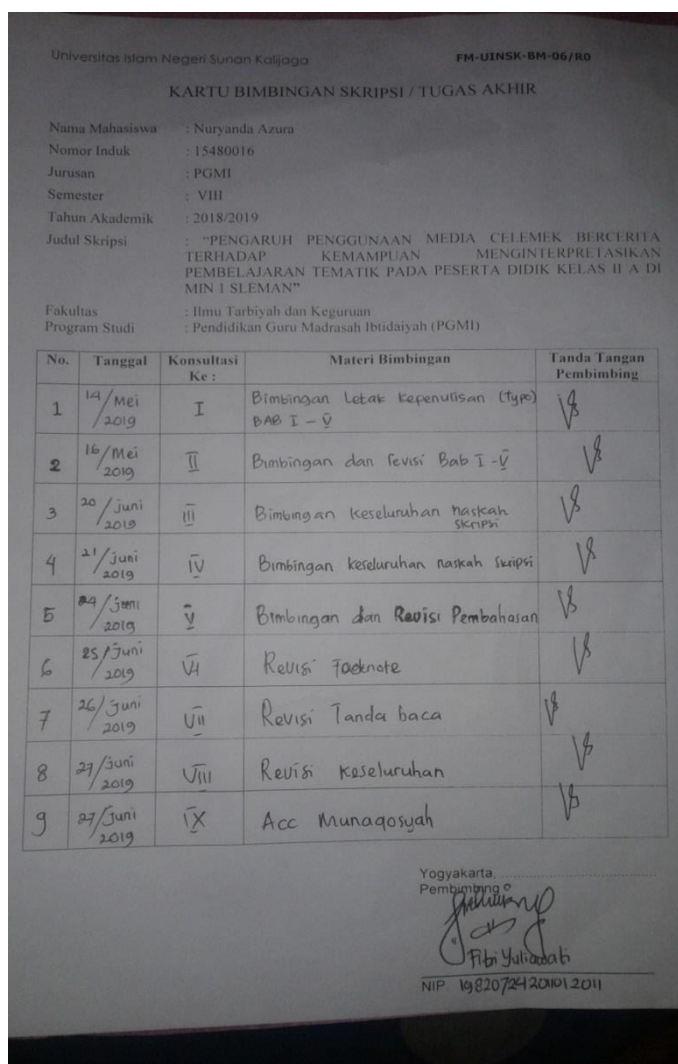 Universitas Islam Negeri Sunan Kalijaga FM-UINSK-BM-06/R0
KARTU BIMBINGAN SKRIPSI / TUGAS AKHIR
Nama Mahasiswa : Nuryanda Azura
Nomor Induk : 15480016
Jurusan : PGMI
Semester : VIII
Tahun Akademik : 2018/2019
Judul Skripsi : "PENGARUH PENGGUNAAN MEDIA CELEMEK BERCERITA
TERHADAP KEMAMPUAN MENGINTERPRETASIKAN
PEMBELAJARAN TEMATIK PADA PESERTA DIDIK KELAS II A DI
MIN 1 SLEMAN"
Fakultas : Ilmu Tarbiyah dan Keguruan
Program Studi : Pendidikan Guru Madrasah Ibtidaiyah (PGMI)
No. Tanggal Konsultasi Ke : Materi Bimbingan Tanda Tangan Pembimbing
1 14/Mei/2019 I Bimbingan Letak Kepenulisan (Typo)
BAB I - V
2 16/Mei/2019 II Bimbingan dan revisi Bab I - V
3 20/juni/2019 III Bimbingan keseluruhan naskah
skripsi
4 21/juni/2019 IV Bimbingan keseluruhan naskah skripsi
5 24/juni/2019 V Bimbingan dan Revisi Pembahasan
6 25/Juni/2019 VI Revisi
7 26/Juni/2019 VII Revisi Tanda baca
8 27/juni/2019 VIII Revisi keseluruhan
9 27/Juni/2019 IX Acc Munaqosyah
Yogyakarta,
Pembimbing
Fitri Yuliawati
NIP 198207242011012011